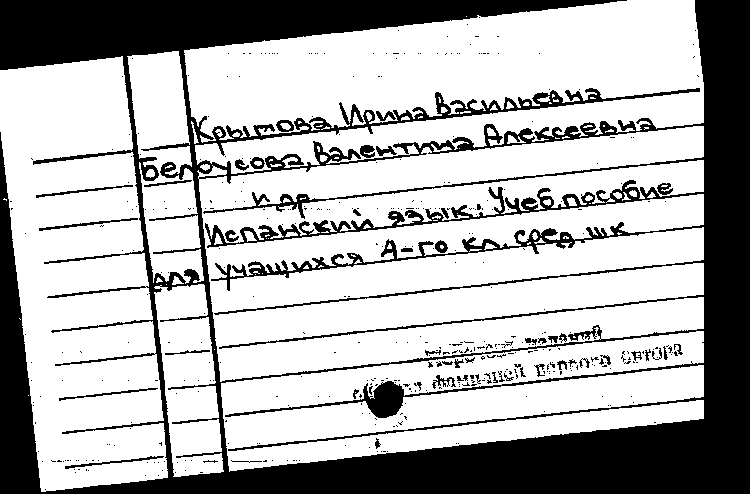 Крымова, Ирина Васильевна
Белоусова, Валентина Алексеевна
и др.
Испанский язык: Учеб. пособие
для учащихся 4-го кл. сред. шк
изданий
фамилией первого автора